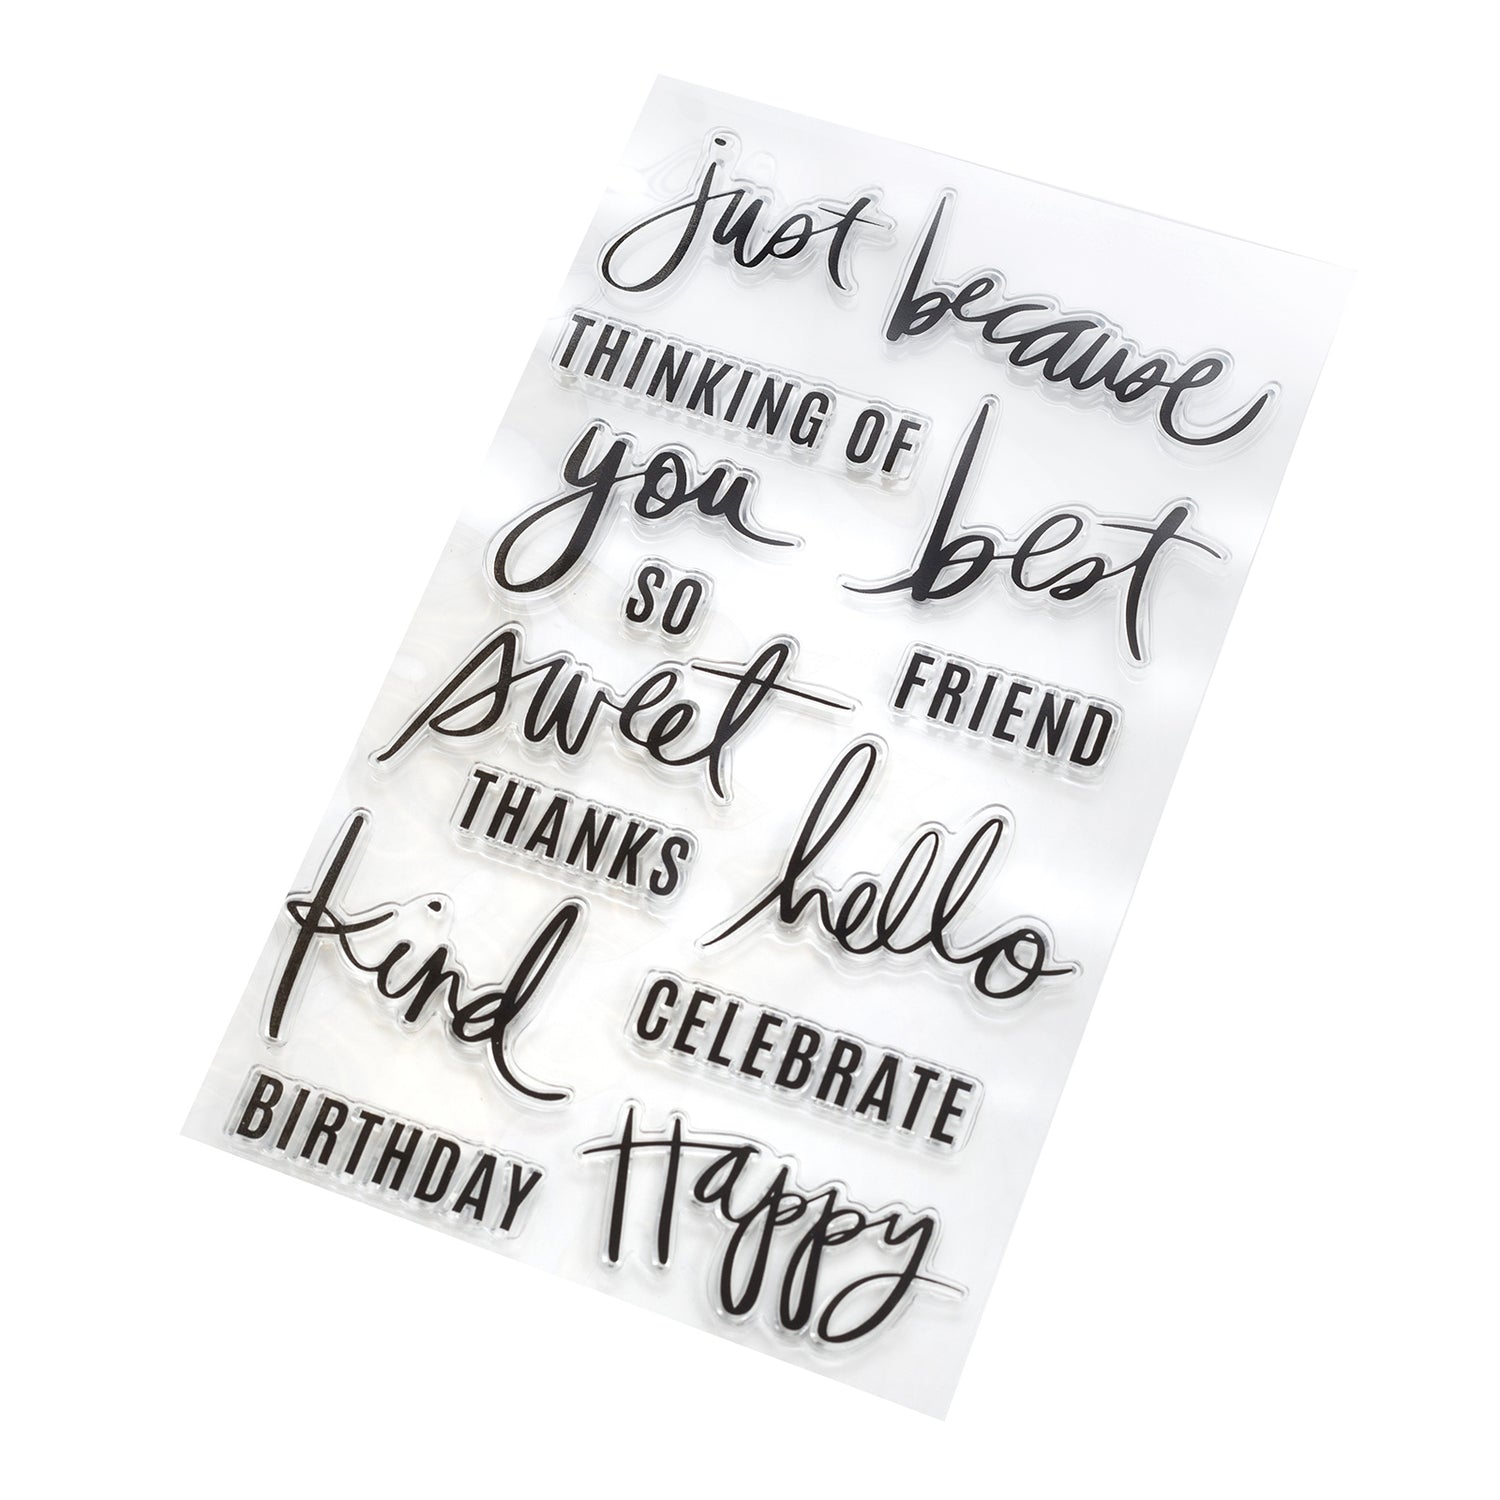 just because
THINKING OF
you
best
SO
FRIEND
sweet
hello
THANKS
kind
CELEBRATE
BIRTHDAY
Happy